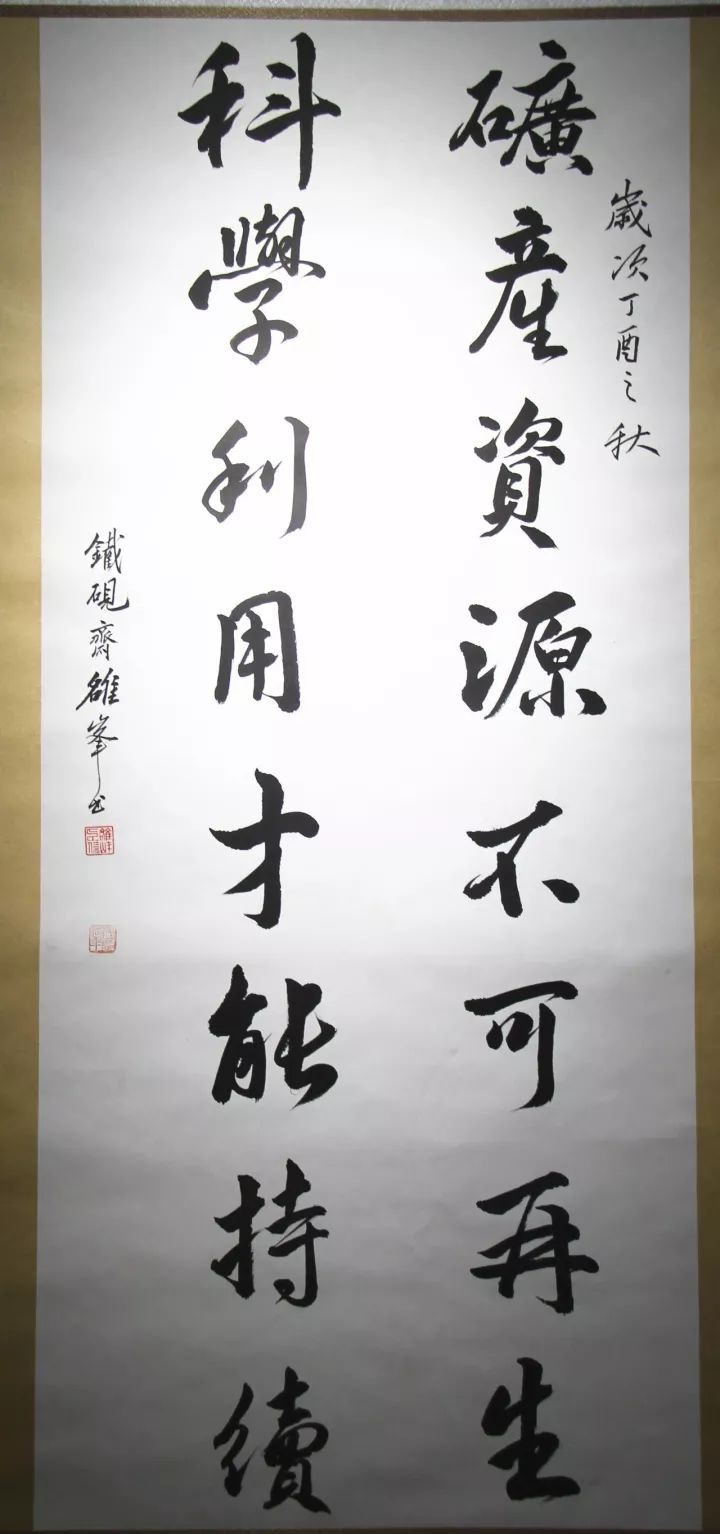 歲次丁酉之秋
礦產資源不可再生
科學利用才能持續
鐵硯齋雄峯书